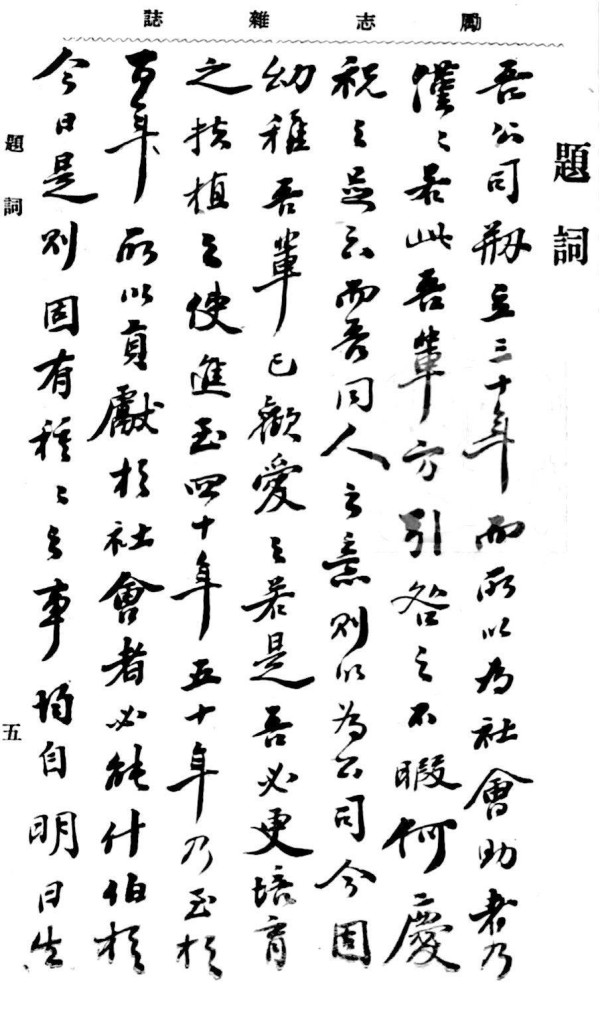 勵志雜誌
題詞
吾公司剏立三十年而所以為社會助者乃
僅〻若此吾輩方引咎之不暇何慶
祝之足云而吾同人之意則以為公司今固
幼稚吾輩已顧愛之若是吾必更培育
之扶植之使進至四十年五十年乃至於
百年所以貢獻於社會者必能什伯於
今日是則固有種〻之事均自明日生
題詞
五